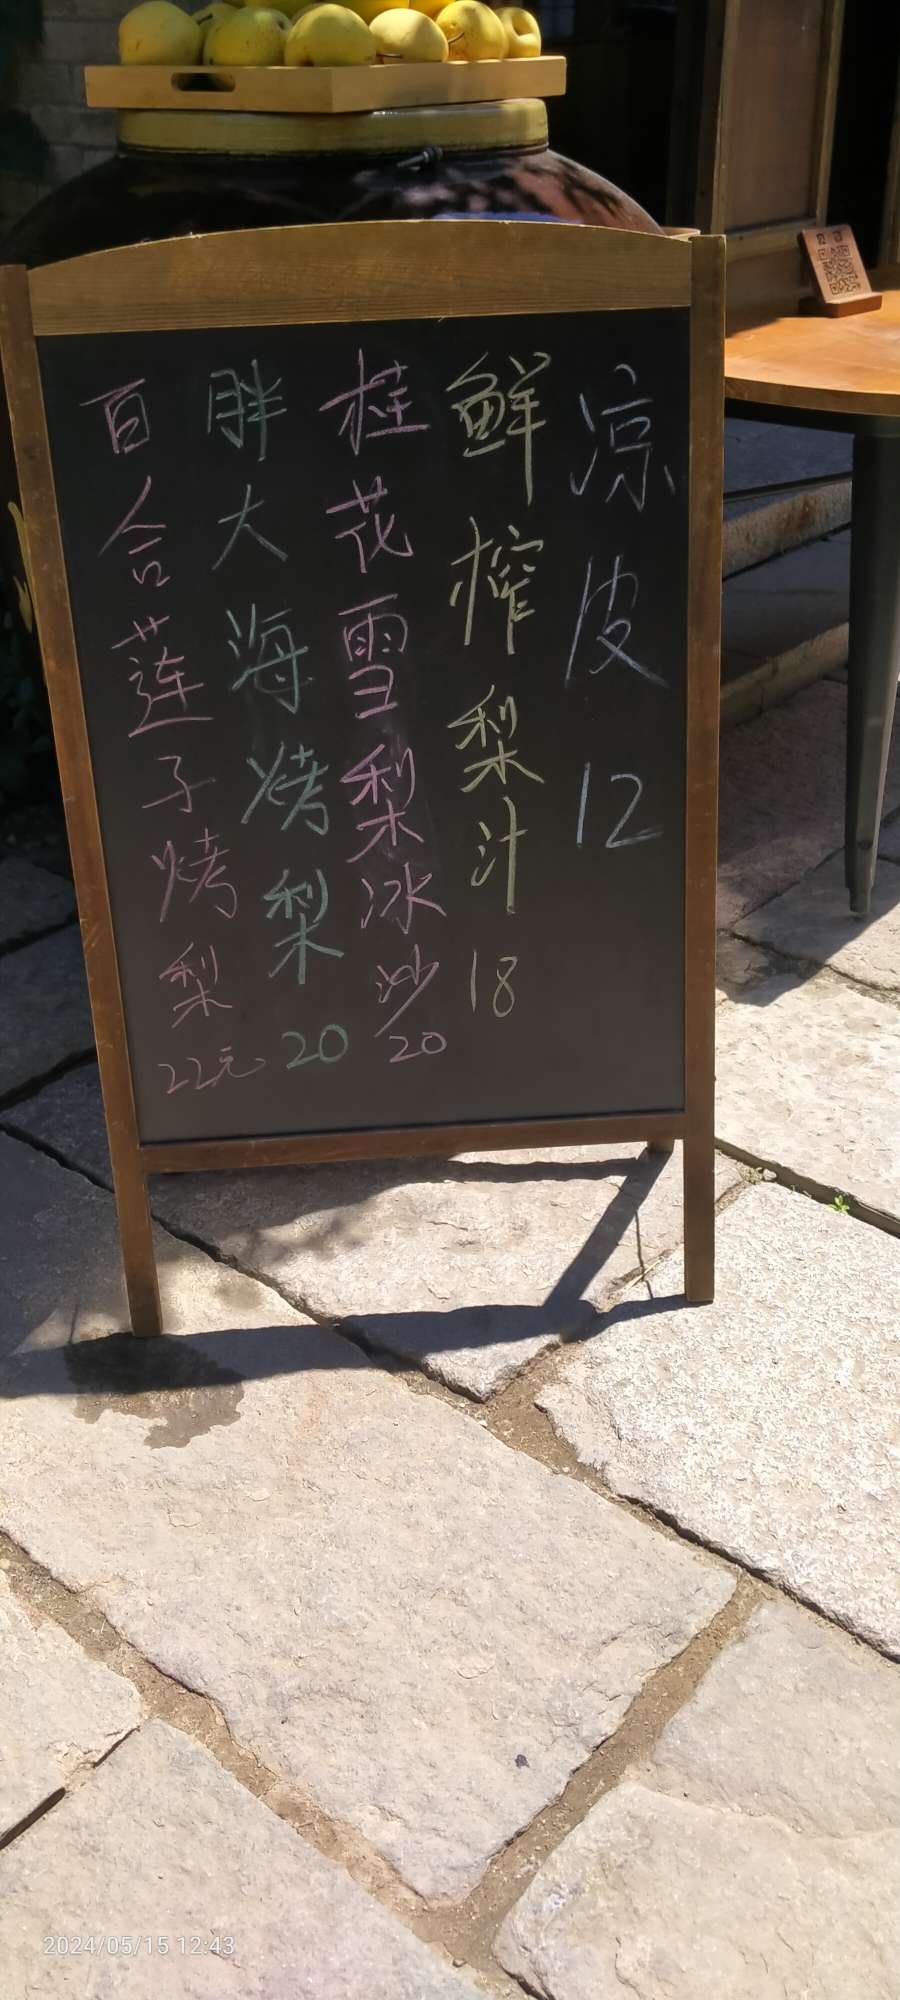 凉皮12
鲜榨梨汁18
桂花雪梨冰沙20
胖大海烤梨20
百合莲子烤梨22元
2024/05/15 12:43